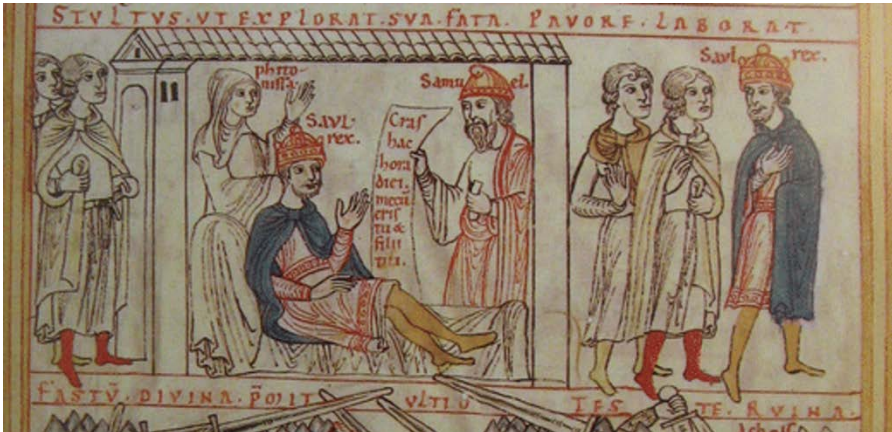 STVLTVS · VT EXPLORAT · SVA · FATA · PAVORE · LABORAT
phito
nissa.
SAVL
rex.
Samu el.
Cras
hac
hora
diei.
mecū
eris
tu &
filii
tui.
Savl rex.
FASTV̄ · DIVINA · P̄MIT VLTIO TES TE · RVINA ·